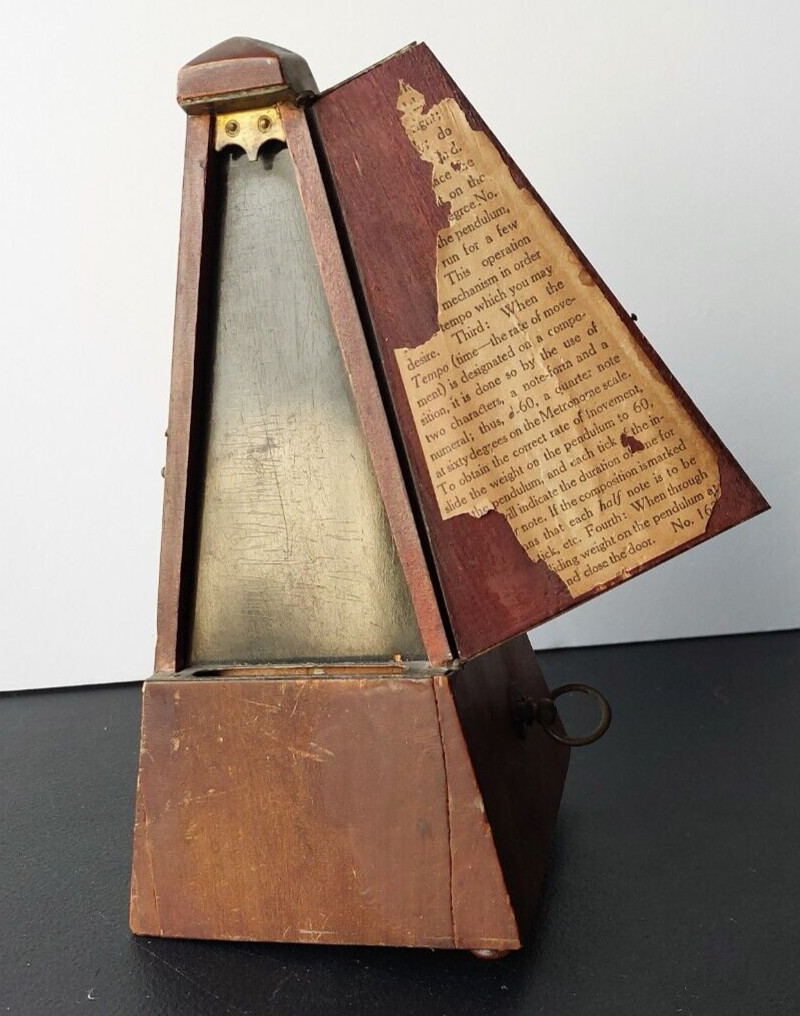 do
on the
egree No.
the pendulum,
run for a few
This operation
mechanism in order
tempo which you may
desire. Third: When the
Tempo (time—the rate of move-
ment) is designated on a compo-
sition, it is done so by the use of
two characters, a note-form and a
numeral; thus, -60, a quarter note
at sixty degrees on the Metronome scale.
To obtain the correct rate of movement,
slide the weight on the pendulum to 60.
the pendulum, and each tick the in-
will indicate the duration of one for
note. If the composition is marked
ns that each half note is to be
tick, etc. Fourth: When through
liding weight on the pendulum a
nd close the door. No. 16